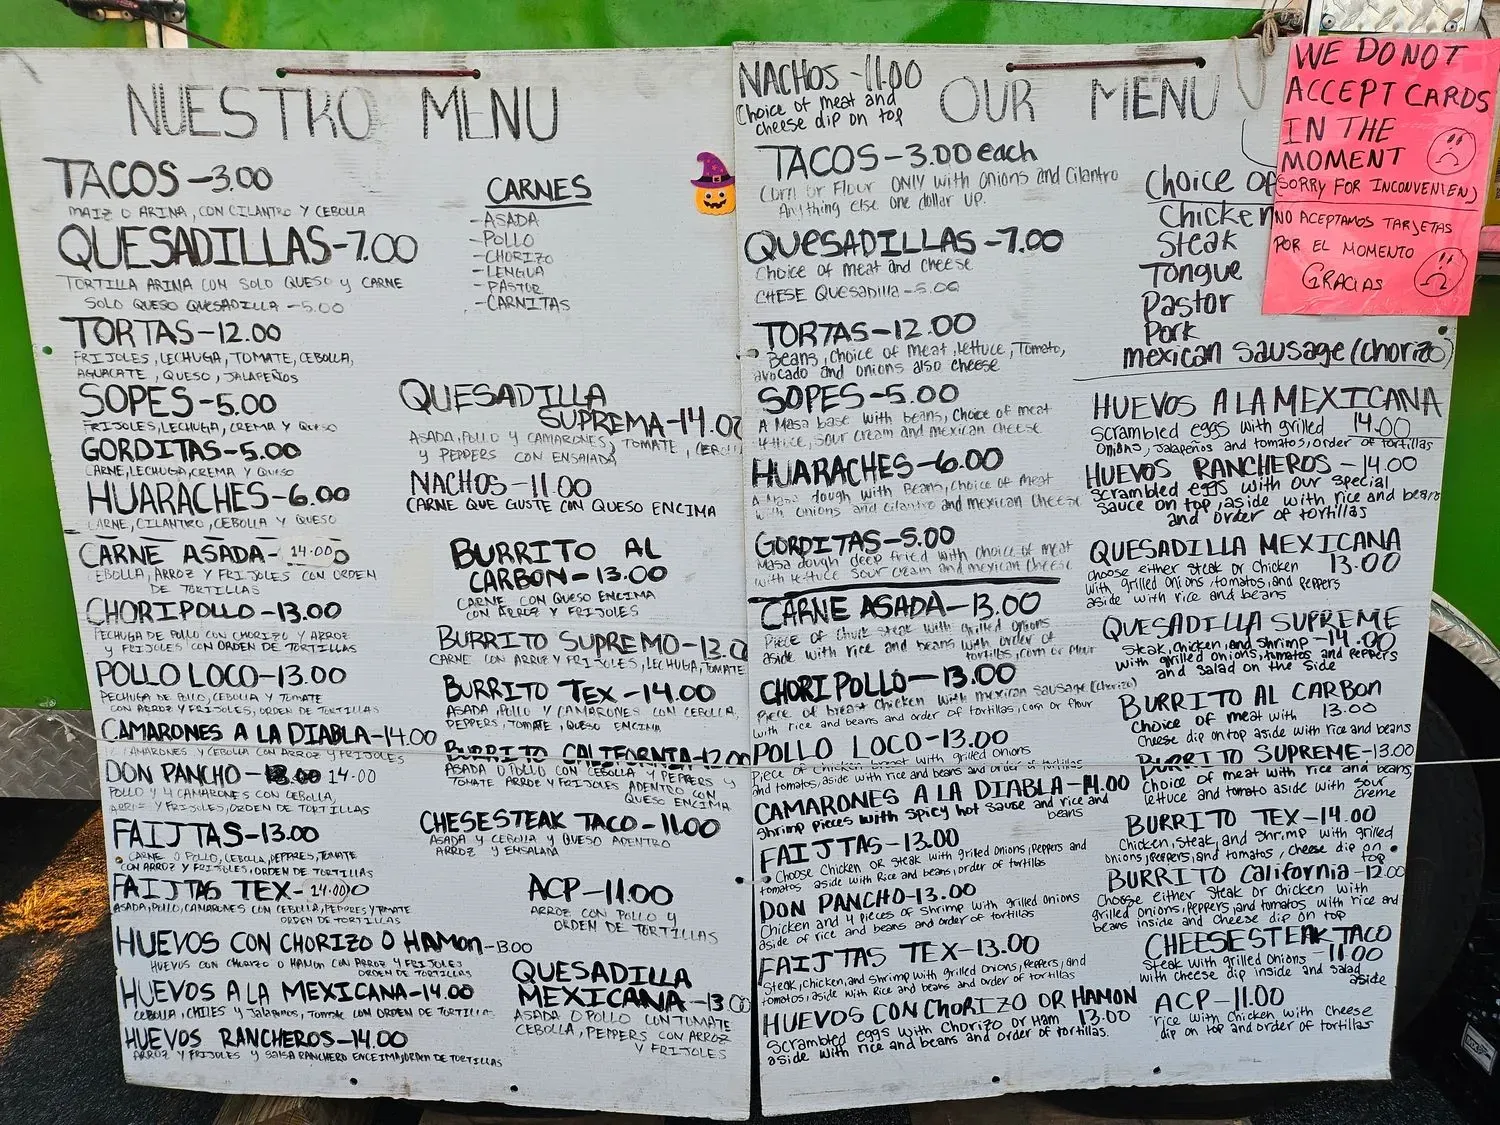 NUESTRO MENU
TACOS-3.00
MAIZ O ARINA, CON CILANTRO Y CEBOLLA
QUESADILLAS-7.00
TORTILLA ARINA CON SOLO QUESO Y CARNE
SOLO QUESO QUESADILLA -5.00
TORTAS-12.00
FRIJOLES, LECHUGA, TOMATE, CEBOLLA,
AGUACATE, QUESO, JALAPEÑOS
SOPES-5.00
FRIJOLES, LECHUGA, CREMA Y QUESO
GORDITAS-5.00
CARNE, LECHUGA, CREMA Y QUESO
HUARACHES-6.00
CARNE, CILANTRO, CEBOLLA Y QUESO
CARNE ASADA-14.00
CEBOLLA, ARROZ Y FRIJOLES CON ORDEN
DE TORTILLAS
CHORIPOLLO-13.00
PECHUGA DE POLLO CON CHORIZO Y ARROZ
Y FRIJOLES CON ORDEN DE TORTILLAS
POLLO LOCO-13.00
PECHUGA DE POLLO, CEBOLLA Y TOMATE
CON ARROZ Y FRIJOLES, ORDEN DE TORTILLAS
CAMARONES A LA DIABLA-14.00
CAMARONES Y CEBOLLA CON ARROZ Y FRIJOLES
DON PANCHO- 14.00
POLLO Y 4 CAMARONES CON CEBOLLA,
ARROZ Y FRIJOLES, ORDEN DE TORTILLAS
FAIJTAS-13.00
CARNE O POLLO, CEBOLLA, PEPPERS, TOMATE
CON ARROZ Y FRIJOLES, ORDEN DE TORTILLAS
FAIJTAS TEX-14.00
ASADA, POLLO, CAMARONES CON CEBOLLA, PEPPERS Y TOMATE
ORDEN DE TORTILLAS
HUEVOS CON CHORIZO O HAMON-13.00
HUEVOS CON CHORIZO O HAMON CON ARROZ Y FRIJOLES
ORDEN DE TORTILLAS
HUEVOS A LA MEXICANA-14.00
CEBOLLA, CHILES Y Jalapenos, TOMATE CON ORDEN DE TORTILLAS
HUEVOS RANCHEROS-14.00
ARROZ Y FRIJOLES Y SALSA RANCHERO ENCEIMA, ORDEN DE TORTILLAS
CARNES
-ASADA
-POLLO
-CHORIZO
-LENGUA
-PASTOR
-CARNITAS
QUESADILLA
SUPREMA-14.00
ASADA, POLLO Y CAMARONES, TOMATE,
Y PEPPERS CON ENSALADA
NACHOS-11.00
CARNE QUE GUSTE CON QUESO ENCIMA
BURRITO AL
CARBON-13.00
CARNE CON QUESO ENCIMA
CON ARROZ Y FRIJOLES
BURRITO SUPREMO-13.0
CARNE CON ARROZ Y FRIJOLES, LECHUGA, TOMATE
BURRITO TEX-14.00
ASADA, POLLO Y CAMARONES CON CEBOLLA,
PEPPERS, TOMATE, QUESO ENCIMA
BURRITO CALIFORNIA-12.00
ASADA O POLLO CON CEBOLLA Y PEPPERS Y
TOMATE ARROZ Y FRIJOLES ADENTRO CON
QUESO ENCIMA
CHESESTEAK TACO-11.00
ASADA Y CEBOLLA Y QUESO ADENTRO
ARROZ Y ENSALADA
ACP-11.00
ARROZ CON POLLO Y
ORDEN DE TORTILLAS
QUESADILLA
MEXICANA-13.00
ASADA O POLLO CON TOMATE
CEBOLLA, PEPPERS CON ARROZ
Y FRIJOLES
NACHOS-11.00
Choice of meat and
cheese dip on top
OUR MENU
TACOS-3.00 each
Corn or Flour ONLY with onions and Cilantro
Anything else one dollar UP.
QUESADILLAS-7.00
Choice of meat and cheese
CHESE Quesadilla-5.00
TORTAS-12.00
Beans, Choice of meat, lettuce, Tomato,
avocado and onions also cheese
SOPES-5.00
A Masa base with beans, Choice of meat
lettuce, sour cream and mexican cheese
HUARACHES-6.00
A Masa dough with Beans, Choice of meat
with onions and cilantro and mexican cheese
GORDITAS-5.00
Masa dough deep fried with choice of meat
with lettuce sour cream and mexican cheese
CARNE ASADA-13.00
Piece of chuck steak with grilled onions
aside with rice and beans with order of
tortillas, corn or flour
CHORI POLLO-13.00
Piece of breast chicken with mexican sausage (chorizo)
with rice and beans and order of tortillas, corn or flour
POLLO LOCO-13.00
Piece of chicken breast with grilled onions
and tomatos, aside with rice and beans and order of tortillas
CAMARONES A LA DIABLA-14.00
Shrimp pieces with spicy hot sause and rice and
beans
FAIJTAS-13.00
Choose Chicken or steak with grilled onions, peppers and
tomatos aside with Rice and beans, order of tortillas
DON PANCHO-13.00
Chicken and 4 pieces of shrimp with grilled onions
aside of rice and beans and order of tortillas
FAIJTAS TEX-13.00
Steak, chicken, and shrimp with grilled onions, peppers, and
tomatos, aside with Rice and beans and order of tortillas
HUEVOS CON CHORIZO OR HAMON
Scrambled eggs with Chorizo or Ham 13.00
aside with rice and beans and order of tortillas.
Choice of
Chicken
Steak
Tongue
Pastor
Pork
mexican sausage (chorizo)
HUEVOS A LA MEXICANA
Scrambled eggs with grilled 14.00
onions, jalapeños and tomatos, order of tortillas
HUEVOS RANCHEROS-14.00
Scrambled eggs with our special
sauce on top, aside with rice and beans
and order of tortillas
QUESADILLA MEXICANA
choose either steak or chicken 13.00
with grilled onions, tomatos, and peppers
aside with rice and beans
QUESADILLA SUPREME
Steak, chicken, and shrimp -14.00
with grilled onions, tomatos and peppers
and salad on the side
BURRITO AL CARBON
Choice of meat with 13.00
Cheese dip on top aside with rice and beans
BURRITO SUPREME-13.00
Choice of meat with rice and beans,
lettuce and tomato aside with sour
creme
BURRITO TEX-14.00
Chicken, steak, and shrimp with grilled
onions, peppers, and tomatos, cheese dip on
top
BURRITO California-12.00
Choose either steak or chicken with
grilled onions, peppers, and tomatos with rice and
beans inside and cheese dip on top
CHEESESTEAK TACO
Steak with grilled onions -11.00
with cheese dip inside and salad
aside
ACP-11.00
rice with chicken with cheese
dip on top and order of tortillas
WE DO NOT
ACCEPT CARDS
IN THE
MOMENT
(SORRY FOR INCONVENIEN,)
NO ACEPTAMOS TARJETAS
POR EL MOMENTO
GRACIAS